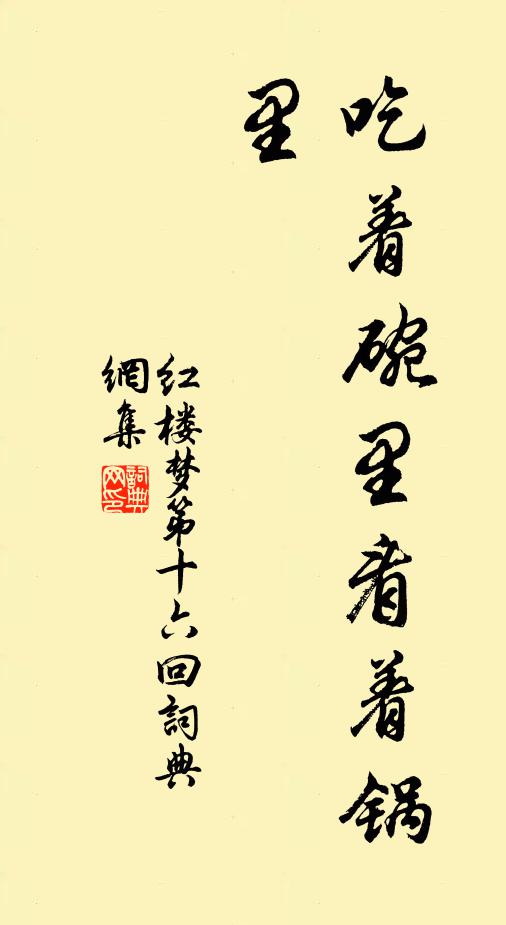 吃着碗里看着锅
里
红楼梦第十六回詞典
網集
詞典
网印